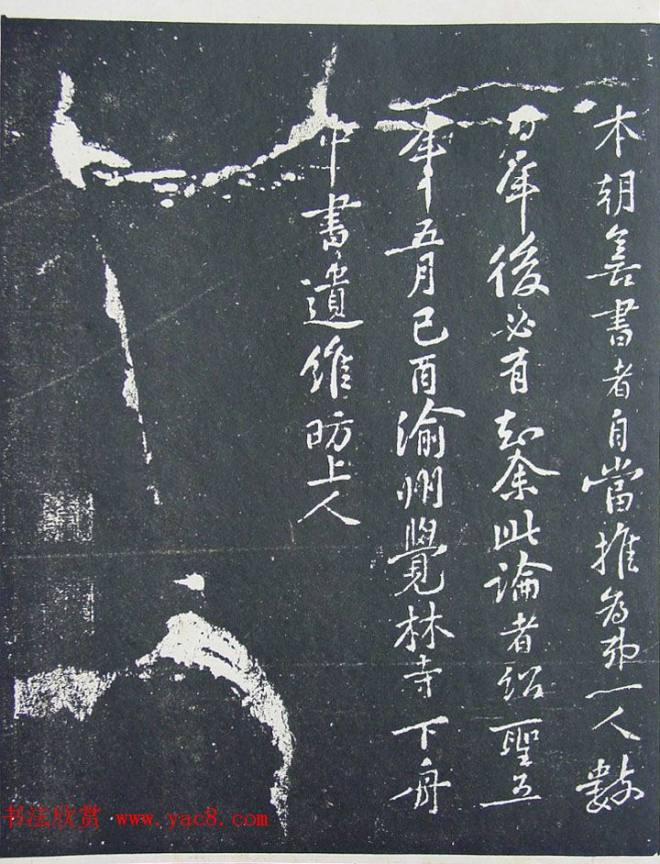 本朝善書者自當推為弟一人數
百年後必有知余此論者紹聖五
年五月己酉渝州覺林寺下舟
中書遺維昉上人
书法欣赏 www.yac8.com